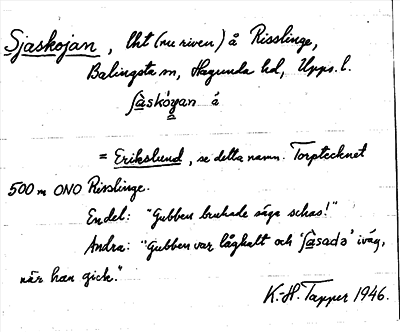 Sjaskojan, lht (nu riven) å Risslinge,
Balingsta sn, Hagunda hd, Upps. l.
ʃaskóyan å
= Erikslund, se detta namn. Torptecknet
500 m ONO Risslinge.
En del: "Gubben brukade säga schas!"
Andra: "Gubben var låghalt och 'ʃasadə' iväg,
när han gick."
K.-H. Tapper 1946.